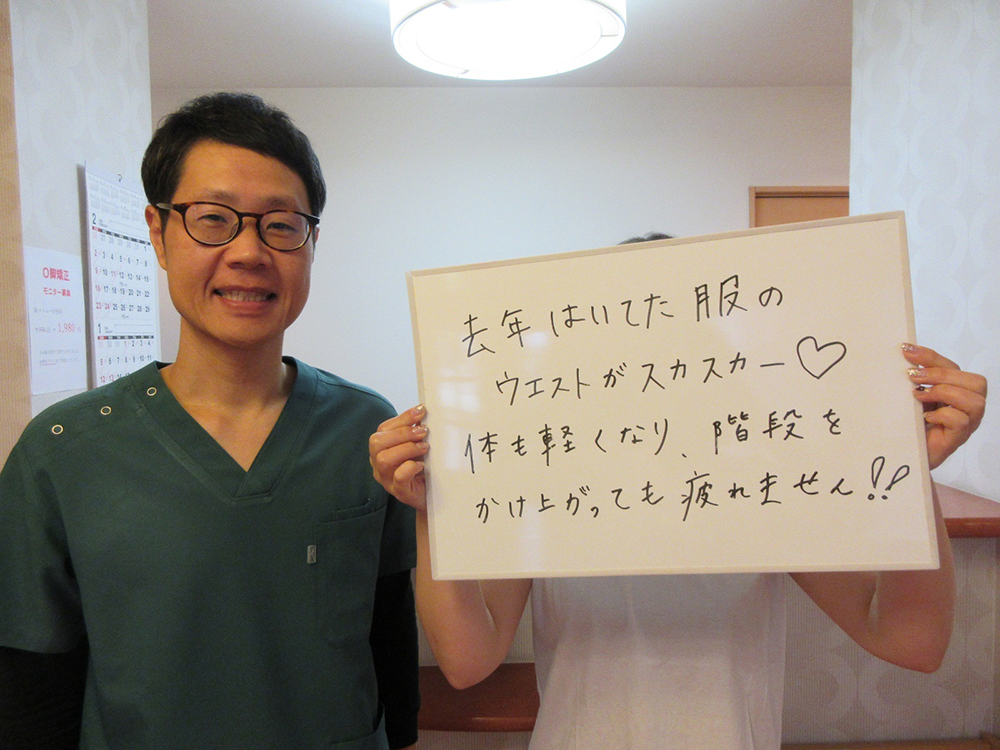 去年はいてた服の
ウエストがスカスカー♡
体も軽くなり、階段を
かけ上がっても疲れません!!
O脚矯正
モニター募集
1,980
2
1